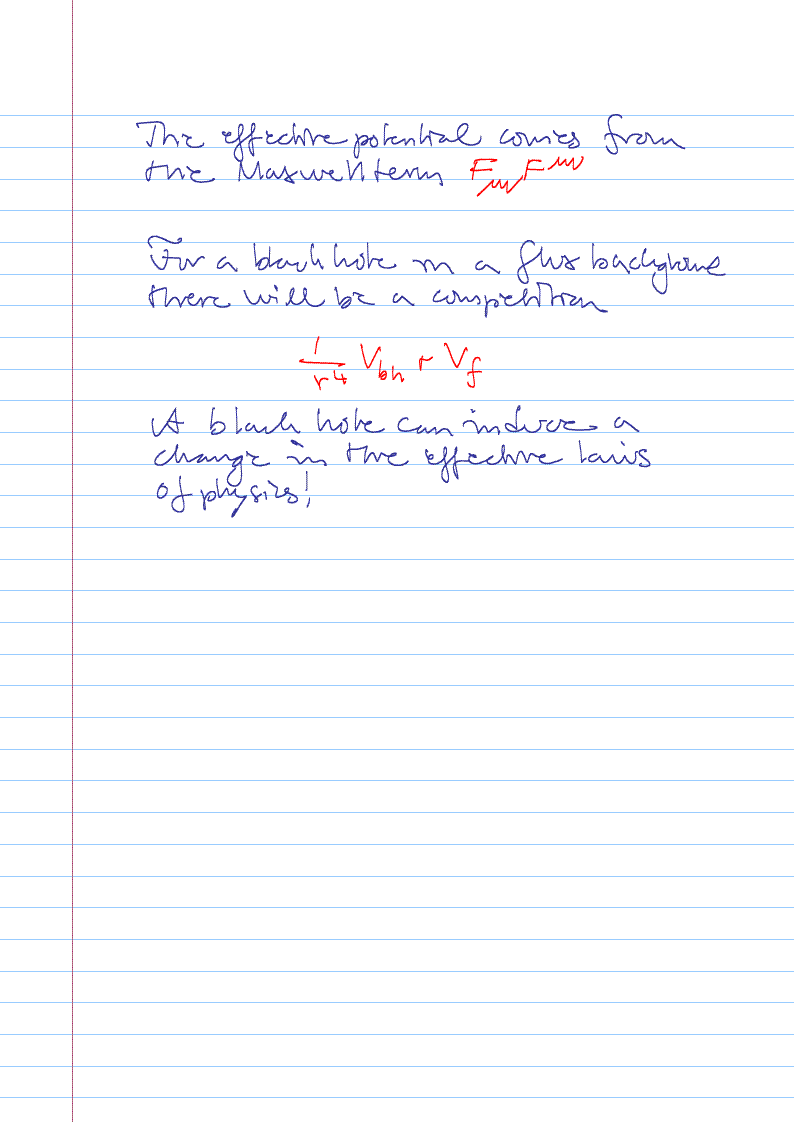 The effective potential comes from
the Maxwell term F_{μν}F^{μν}
For a black hole in a flux background
there will be a competition
1/r⁴ V_{bh} + V_f
A black hole can induce a
change in the effective laws
of physics!